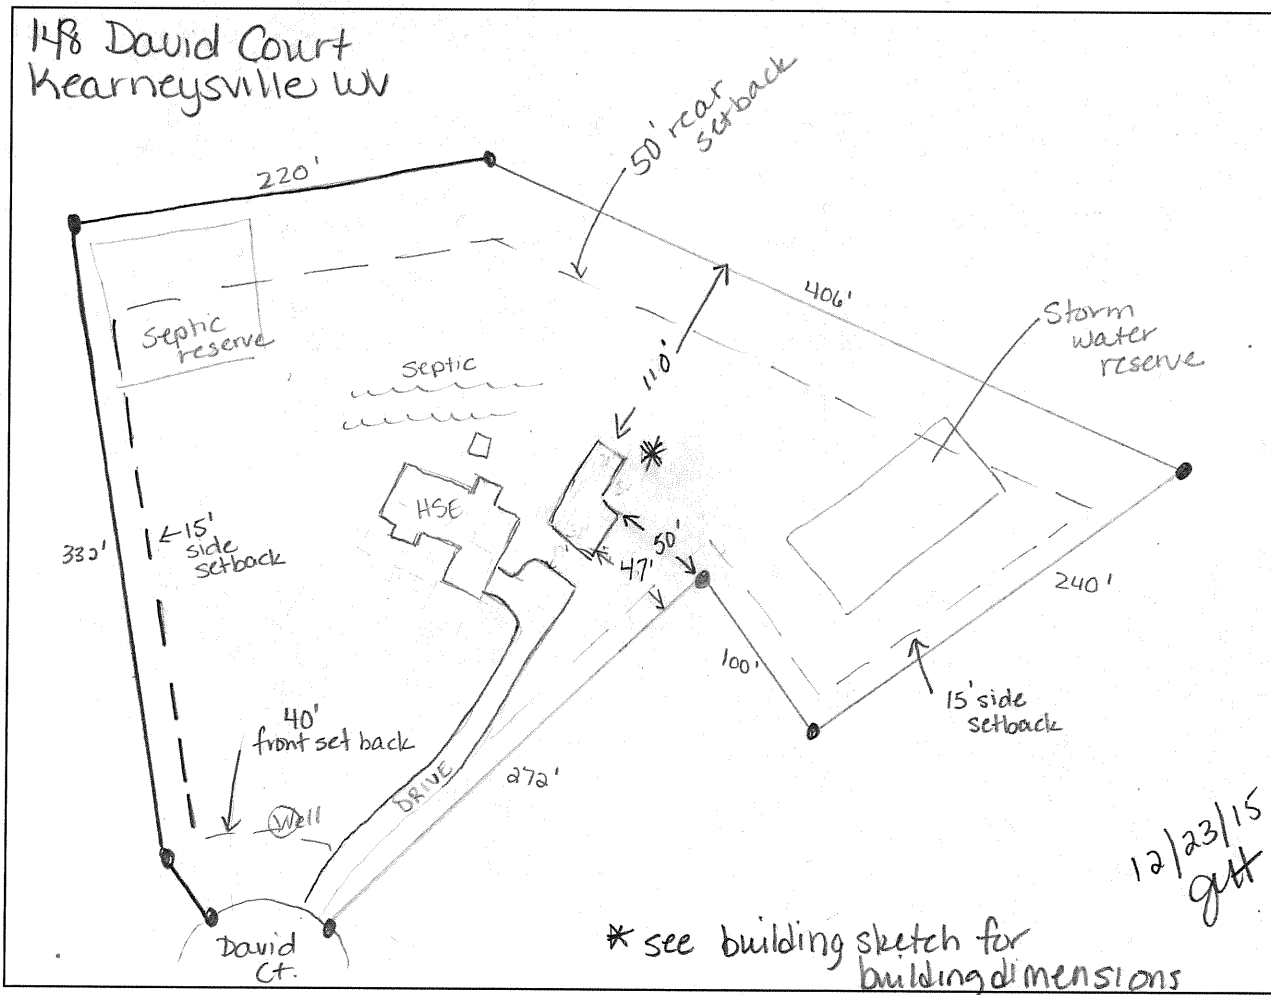 148 David Court
Kearneysville WV
50' rear
setback
220'
406'
Storm
water
reserve
Septic
reserve
Septic
110'
*
HSE
332'
←15'
side
setback
50'
47'
240'
100'
15' side
setback
40'
front set back
272'
DRIVE
Well
David
Ct.
12/23/15
* see building sketch for
building dimensions